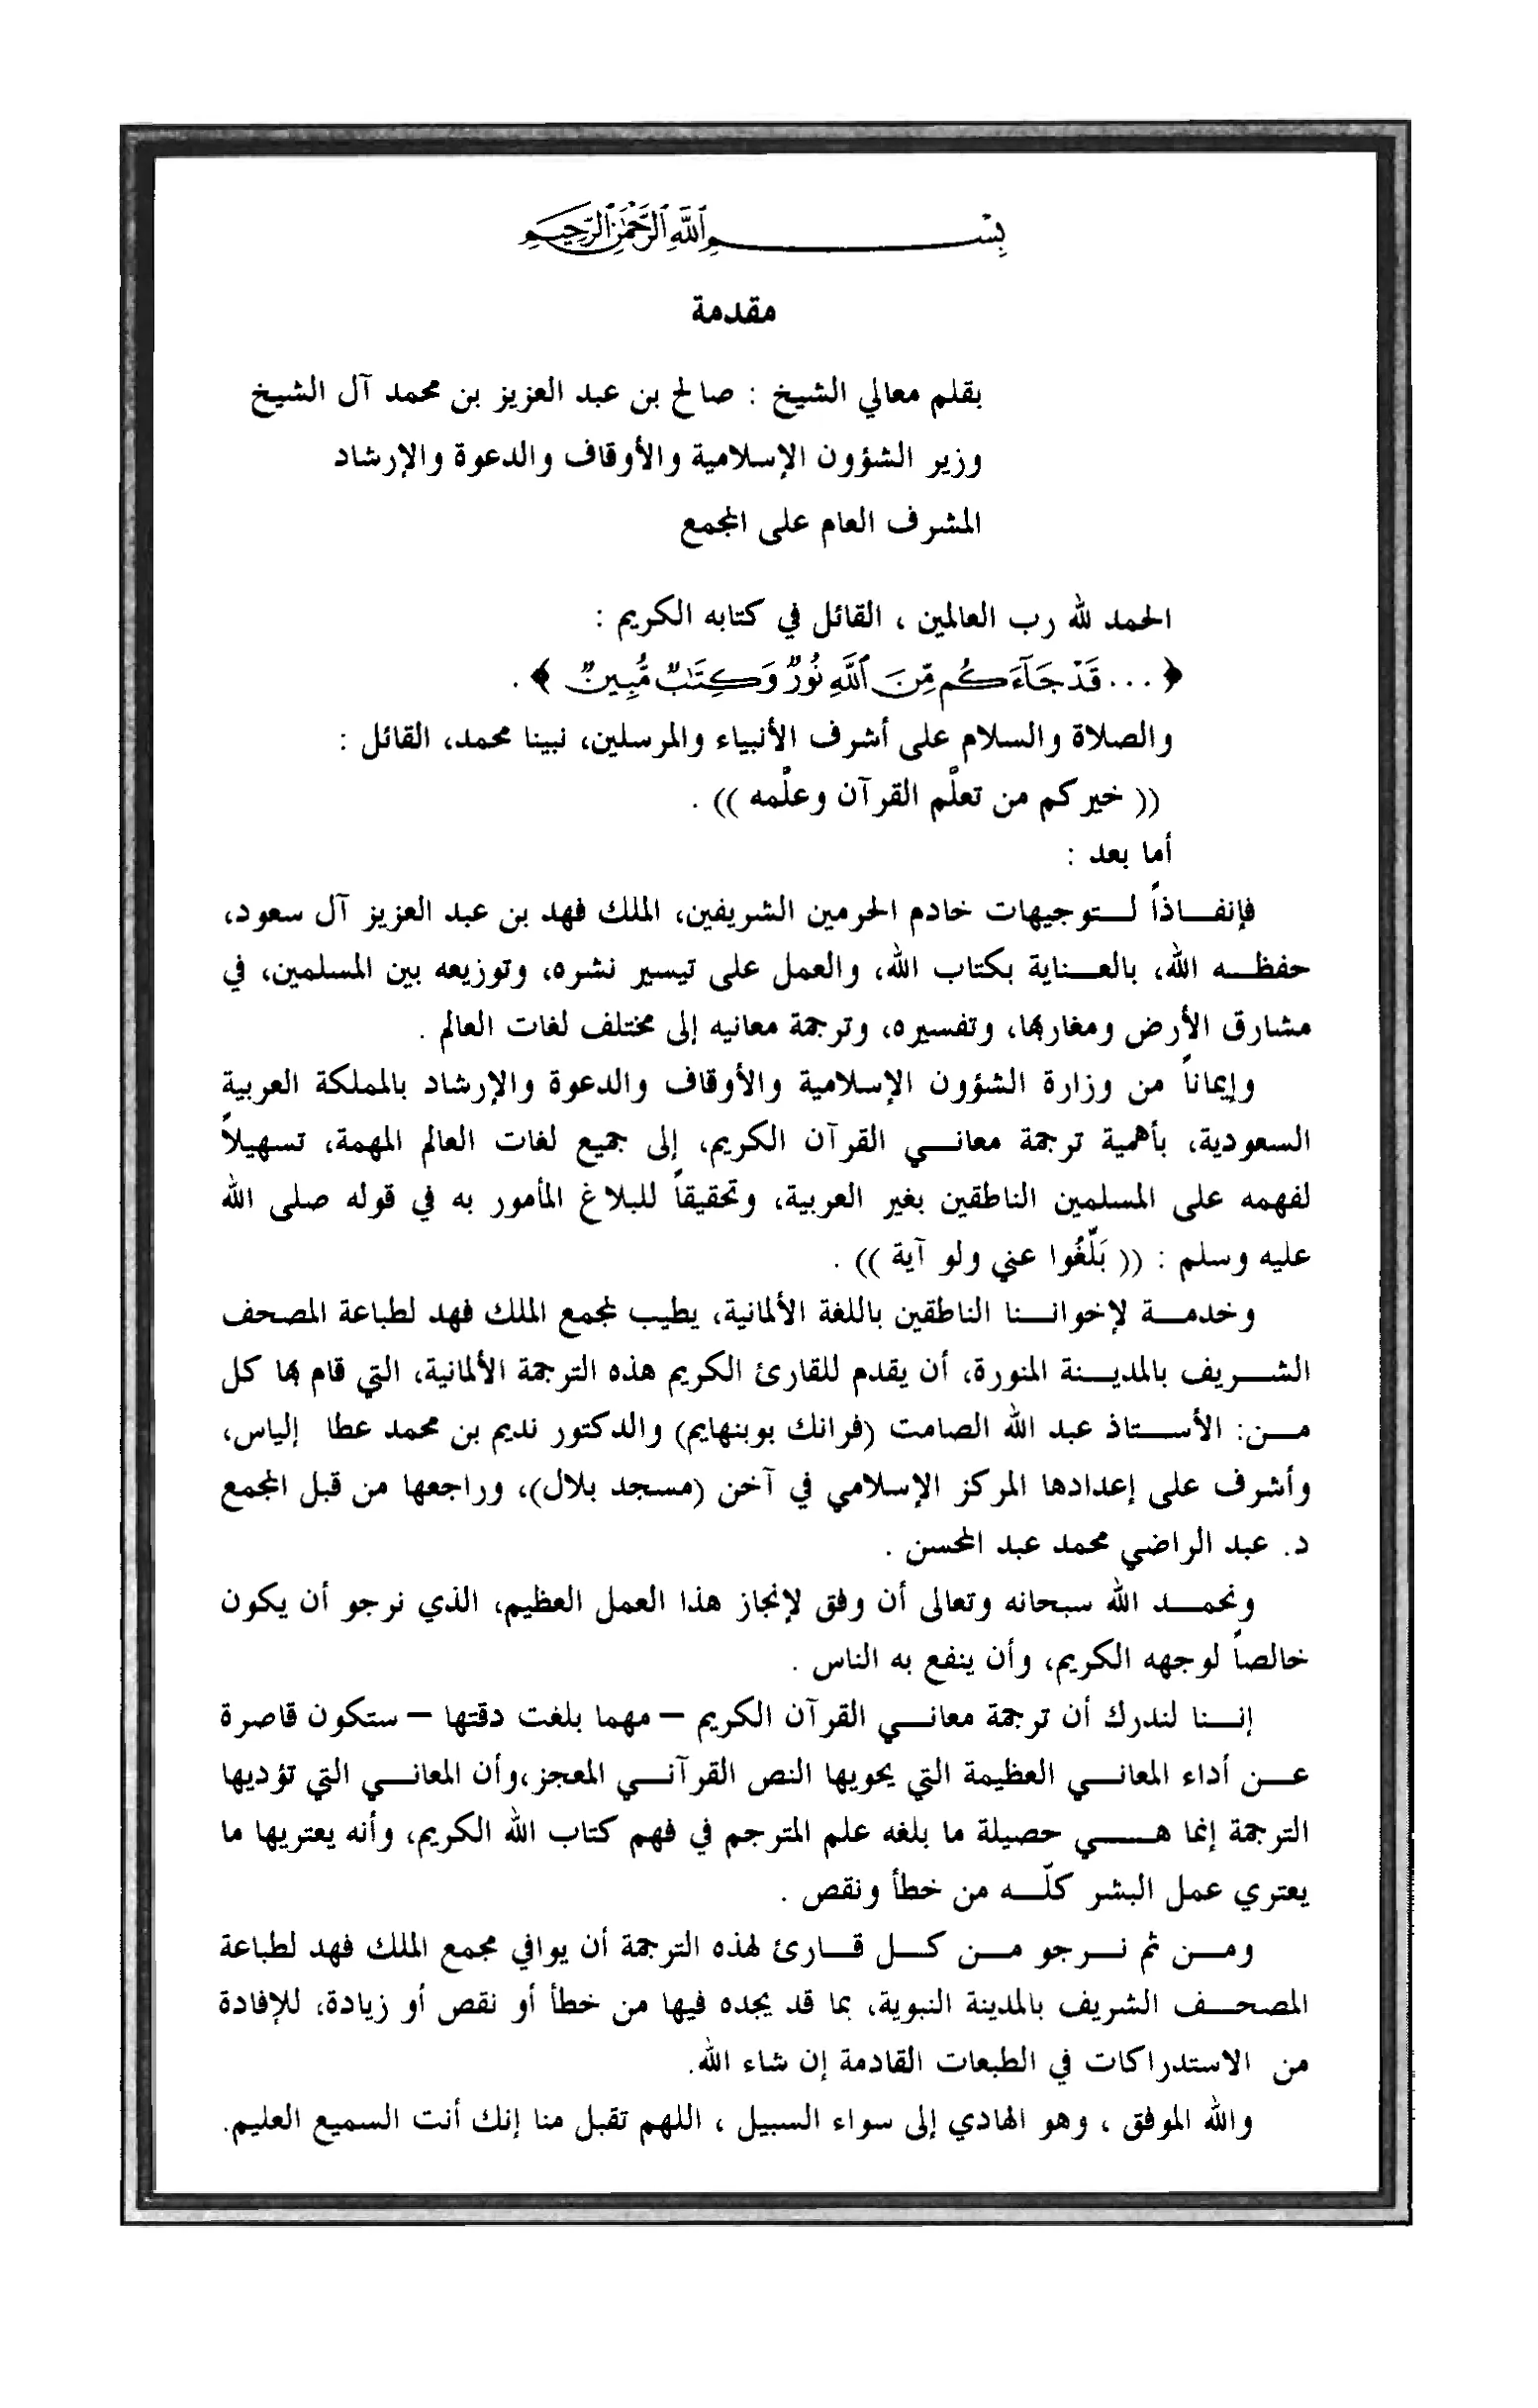 بِسْمِ ٱللَّهِ ٱلرَّحْمَٰنِ ٱلرَّحِيمِ
مقدمة
بقلم معالي الشيخ : صالح بن عبد العزيز بن محمد آل الشيخ
وزير الشؤون الإسلامية والأوقاف والدعوة والإرشاد
المشرف العام على المجمع
الحمد لله رب العالمين ، القائل في كتابه الكريم :
﴿ ... قَدْ جَآءَكُم مِّنَ ٱللَّهِ نُورٌ وَكِتَٰبٌ مُّبِينٌ ﴾ .
والصلاة والسلام على أشرف الأنبياء والمرسلين، نبينا محمد، القائل :
(( خيركم من تعلَّم القرآن وعلَّمه )) .
أما بعد :
فإنفاذاً لتوجيهات خادم الحرمين الشريفين، الملك فهد بن عبد العزيز آل سعود،
حفظه الله، بالعناية بكتاب الله، والعمل على تيسير نشره، وتوزيعه بين المسلمين، في
مشارق الأرض ومغاربها، وتفسيره، وترجمة معانيه إلى مختلف لغات العالم .
وإيماناً من وزارة الشؤون الإسلامية والأوقاف والدعوة والإرشاد بالمملكة العربية
السعودية، بأهمية ترجمة معاني القرآن الكريم، إلى جميع لغات العالم المهمة، تسهيلاً
لفهمه على المسلمين الناطقين بغير العربية، وتحقيقاً للبلاغ المأمور به في قوله صلى الله
عليه وسلم : (( بَلِّغُوا عني ولو آية )) .
وخدمة لإخواننا الناطقين باللغة الألمانية، يطيب لمجمع الملك فهد لطباعة المصحف
الشريف بالمدينة المنورة، أن يقدم للقارئ الكريم هذه الترجمة الألمانية، التي قام بها كل
من: الأستاذ عبد الله الصامت (فرانك بوبنهايم) والدكتور نديم بن محمد عطا إلياس،
وأشرف على إعدادها المركز الإسلامي في آخن (مسجد بلال)، وراجعها من قبل المجمع
د. عبد الراضي محمد عبد المحسن .
ونحمد الله سبحانه وتعالى أن وفق لإنجاز هذا العمل العظيم، الذي نرجو أن يكون
خالصاً لوجهه الكريم، وأن ينفع به الناس .
إننا لندرك أن ترجمة معاني القرآن الكريم – مهما بلغت دقتها – ستكون قاصرة
عن أداء المعاني العظيمة التي يحويها النص القرآني المعجز،وأن المعاني التي تؤديها
الترجمة إنما هي حصيلة ما بلغه علم المترجم في فهم كتاب الله الكريم، وأنه يعتريها ما
يعتري عمل البشر كلّه من خطأ ونقص .
ومن ثم نرجو من كل قارئ لهذه الترجمة أن يوافي مجمع الملك فهد لطباعة
المصحف الشريف بالمدينة النبوية، بما قد يجده فيها من خطأ أو نقص أو زيادة، للإفادة
من الاستدراكات في الطبعات القادمة إن شاء الله.
والله الموفق ، وهو الهادي إلى سواء السبيل ، اللهم تقبل منا إنك أنت السميع العليم.